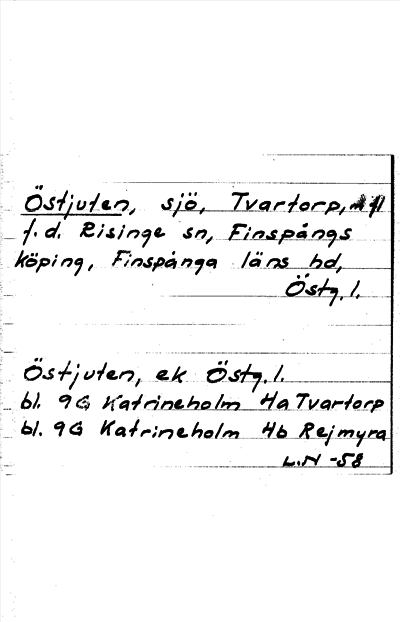 Östjuten, sjö, Tvartorp,
f.d. Risinge sn, Finspångs
köping, Finspånga läns hd,
Östg.l.
Östjuten, ek Östg.l.
bl. 9G Katrineholm 4a Tvartorp
bl. 9G Katrineholm 4b Rejmyra
L.N -58